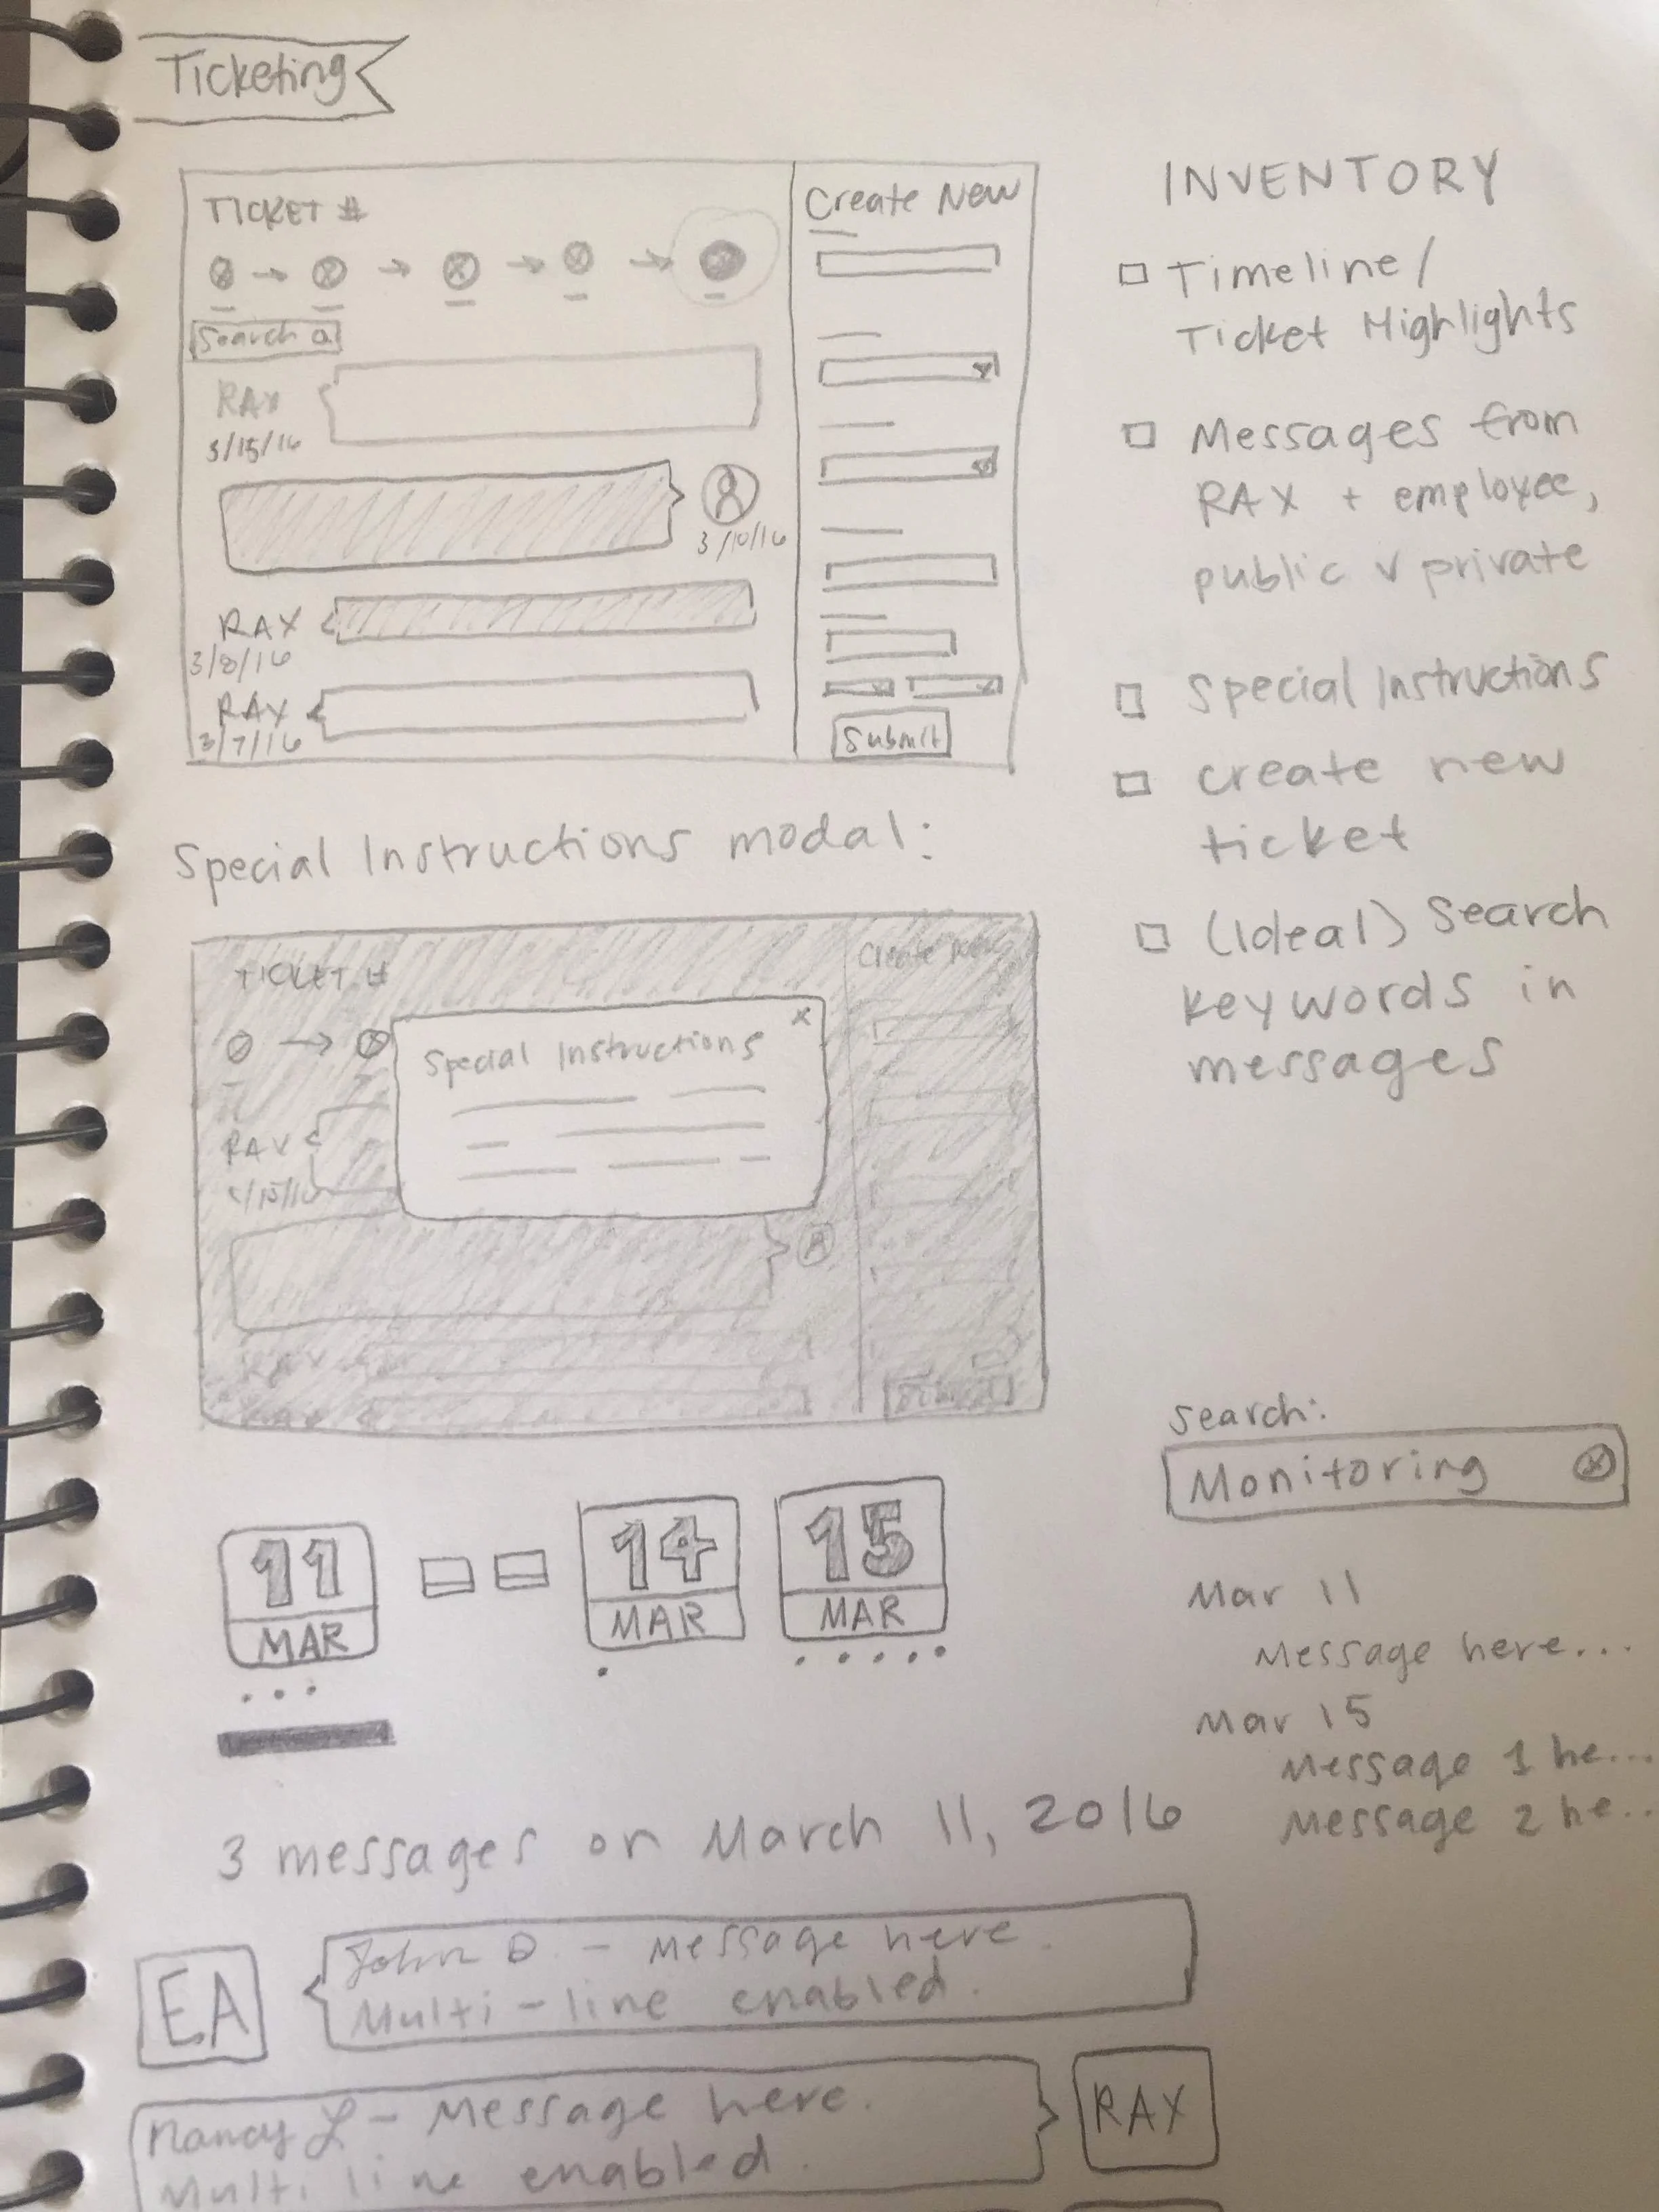 Ticketing
TICKET #
Search
RAX
3/15/16
3/10/16
RAX
3/8/16
RAX
3/7/16
Create New
Submit
INVENTORY
Timeline/
Ticket Highlights
Messages from
RAX + employee,
public v private
Special Instructions
create new
ticket
(Ideal) Search
keywords in
messages
Special Instructions modal:
TICKET #
Create New
x
Special Instructions
RAX
RAX
11
MAR
14
MAR
15
MAR
3 messages on March 11, 2016
EA
John D. - Message here.
Multi-line enabled.
Nancy L - Message here.
Multi line enabled.
RAX
Search:
Monitoring
Mar 11
Message here...
Mar 15
Message 1 he...
Message 2 he...